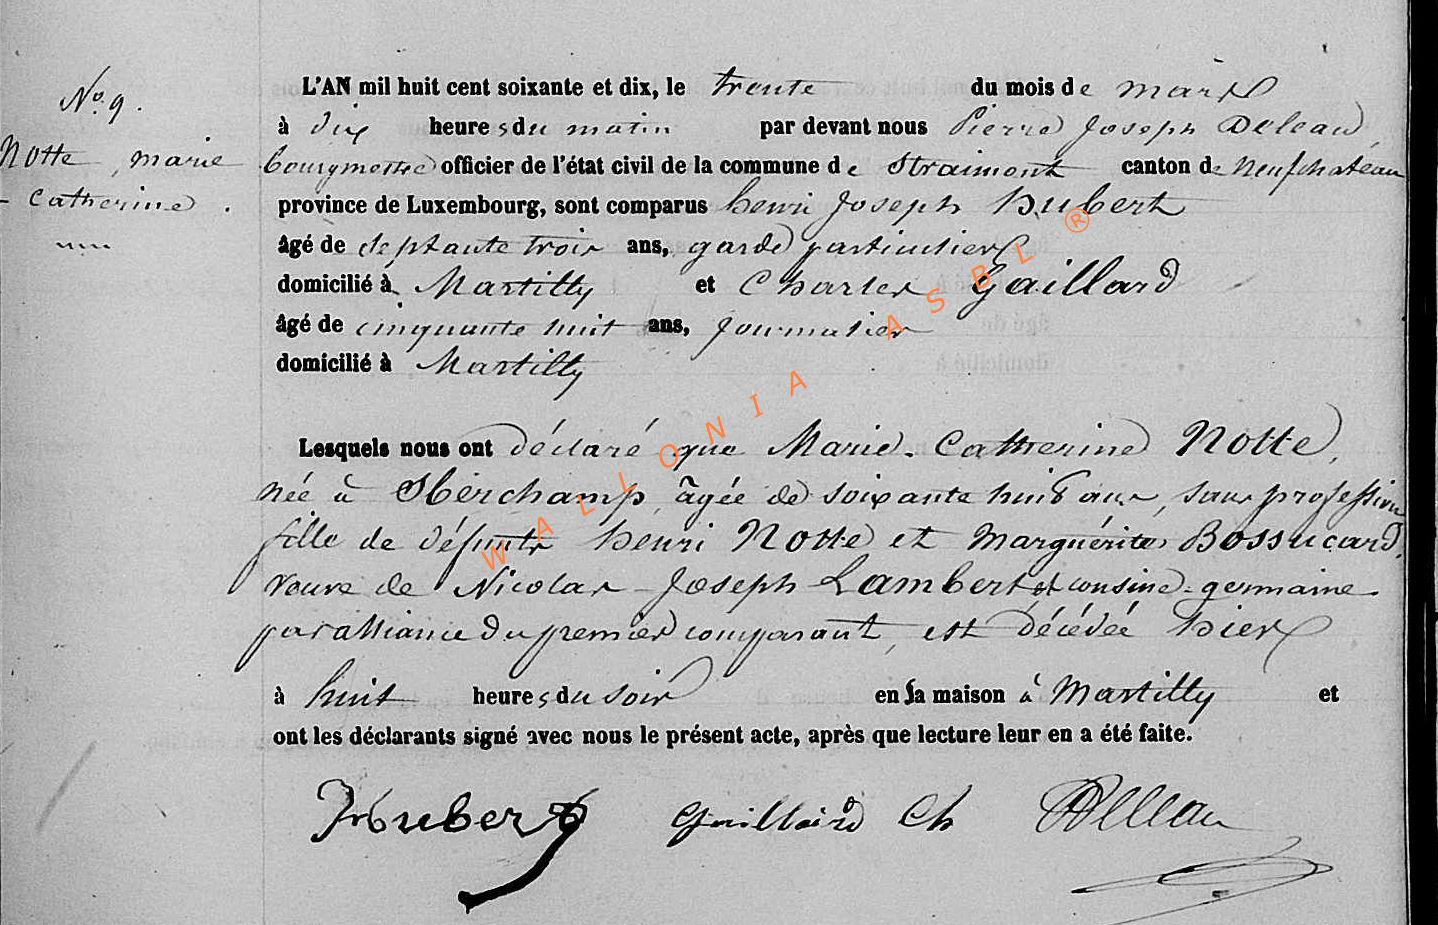 N.º 9.
Notte, marie
- Catherine.
L'AN mil huit cent soixante et dix, le trente du mois de mars
à dix heures du matin par devant nous Pierre Joseph Deleau,
bourgmestre officier de l'état civil de la commune de Straimont canton de Neufchateau
province de Luxembourg, sont comparus henri Joseph Hubert
âgé de septante trois ans, garde particulier
domicilié à Martilly et Charles Gaillard
âgé de cinquante huit ans, journalier
domicilié à Martilly
Lesquels nous ont déclaré que Marie-Catherine Notte,
née à Sberchamp, âgée de soixante huit ans, sans profession
fille de défunts henri Notte et Marguérite Bossucard,
veuve de Nicolas-Joseph Lambert et cousine-germaine
par alliance du premier comparant, est décédée hier
à huit heures du soir en sa maison à Martilly et
ont les déclarants signé avec nous le présent acte, après que lecture leur en a été faite.
Hubert Gaillard Ch Deleau
WALLONIA ASBL ®